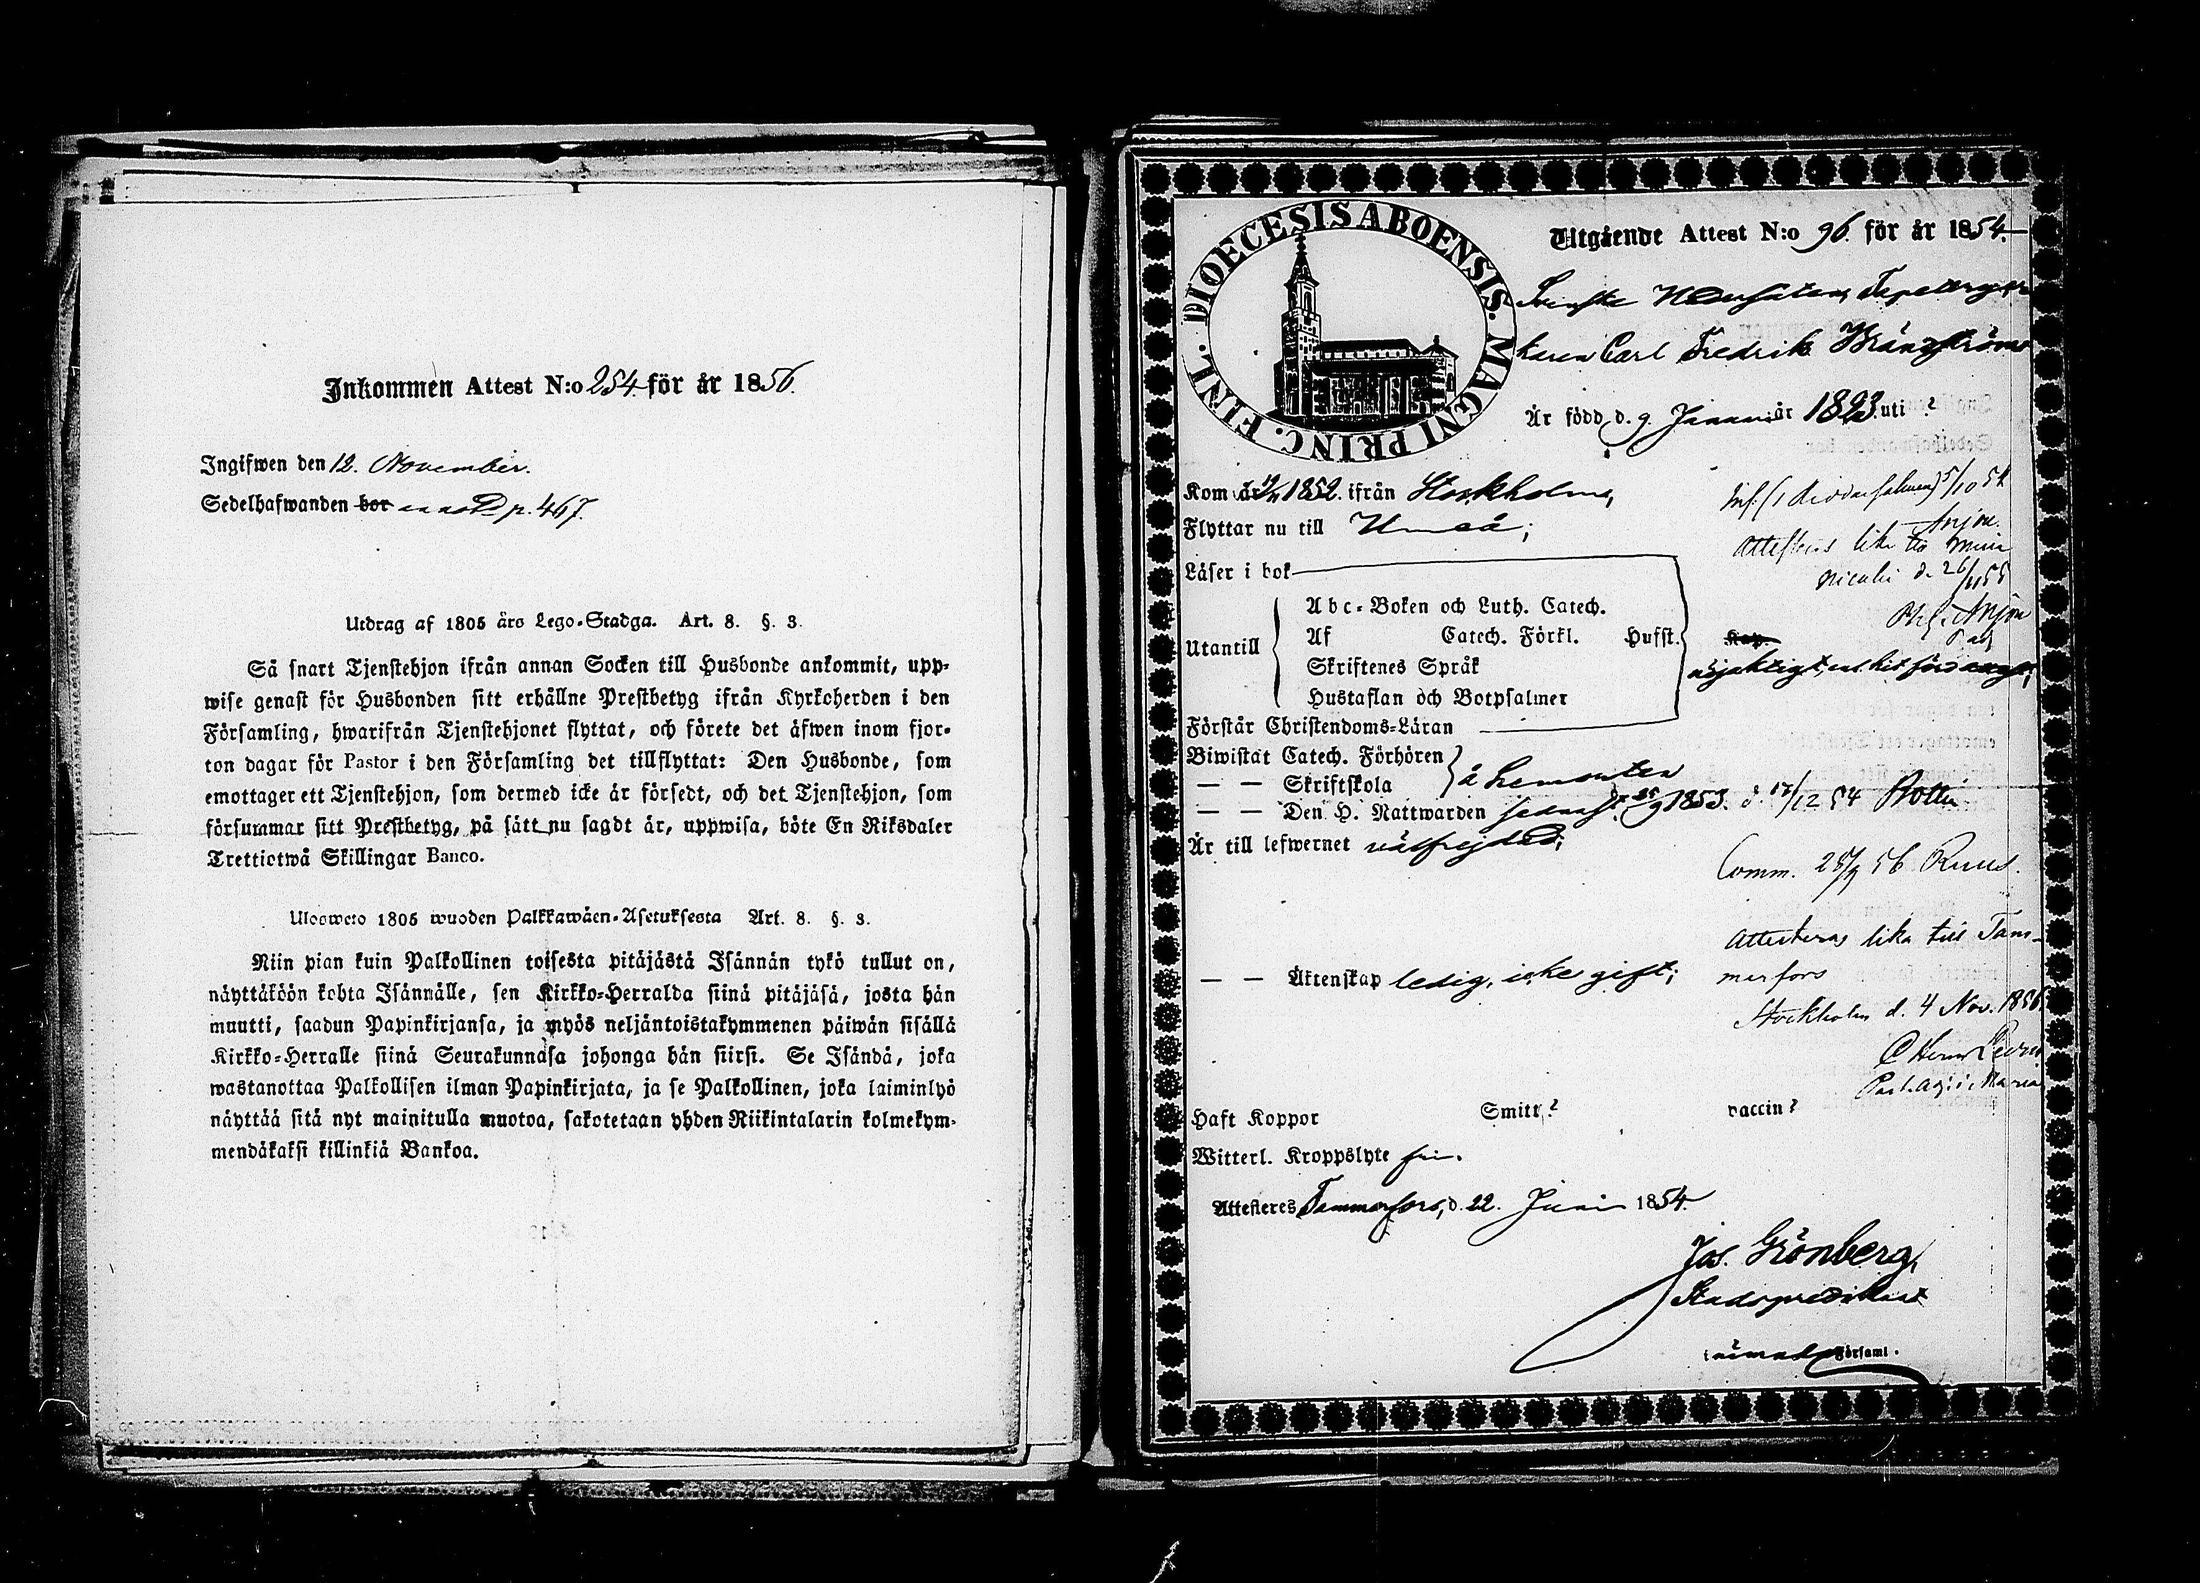 Inkommen Attest N:o 254 för år 1856.
Ingifwen den 12. November.
Sedelhafwanden bor p. 467.
Utdrag af 1805 års Lego-Stadga. Art. 8. §. 3.
Så snart Tjenstehjon ifrån annan Socken till Husbonde ankommit, upp-
wise genast för Husbonden sitt erhållne Prestbetyg ifrån Kyrkoherden i den
Församling, hwarifrån Tjenstehjonet flyttat, och förete det äfwen inom fjor-
ton dagar för Pastor i den Församling det tillflyttat: Den Husbonde, som
emottager ett Tjenstehjon, som dermed icke är försedt, och det Tjenstehjon, som
försummar sitt Prestbetyg, på sätt nu sagdt är, uppwisa, böte En Riksdaler
Trettiotwå Skillingar Banco.
Ulosweto 1805 wuoden Palkkawäen-Asetuksesta Art. 8. §. 3.
Niin pian kuin Palkollinen toisesta pitäjästä Isännän tykö tullut on,
näyttäköön kohta Isännälle, sen Kirkko-Herralda siinä pitäjäsä, josta hän
muutti, saadun Papinkirjansa, ja myös neljäntoistakymmenen päiwän sisällä
Kirkko-Herralle siinä Seurakunnasa johonga hän siirsi. Se Isändä, joka
wastanottaa Palkollisen ilman Papinkirjata, ja se Palkollinen, joka laiminlyö
näyttää sitä nyt mainitulla muotoa, sakotetaan yhden Riikintalarin kolmekym-
mendäkaksi killinkiä Bankoa.
DIOECESIS ABOENSIS. MAGNI PRINC. FINL.
Utgående Attest N:o 96. för år 1854.
Svenske Undersåten, Tapetseraren
Carl Fredrik
Är född d. 9 Januari år 1823 uti ?
Kom år 1852. ifrån Stockholm,
Flyttar nu till Umeå;
5/10 54
Anjou.
Attesteras lika
d. 26/
Anjou
Läser i bok
Utantill
Abc-Boken och Luth. Catech.
Af Catech. Förkl. Husst.
Skriftenes Språk
Hustaflan och Botpsalmer
Kap.
Förstår Christendoms-Läran
Biwistat Catech. Förhören
— — Skriftskola
— — Den H. Nattwarden sednast 1853. d. 17/12 54
Är till lefwernet wälfrejdad;
Comm. 56
Attesteras lika till Tam-
merfors
— — Äktenskap ledig, icke gift;
Stockholm d. 4 Nov. 1856
Past. Adj. i Maria
Haft Koppor Smitt? vaccin?
Witterl. Kroppslyte fri.
Attesteres Tammerfors, d. 22. Juni 1854.
Jos. Grönberg,
Stadspredikant
Församl.